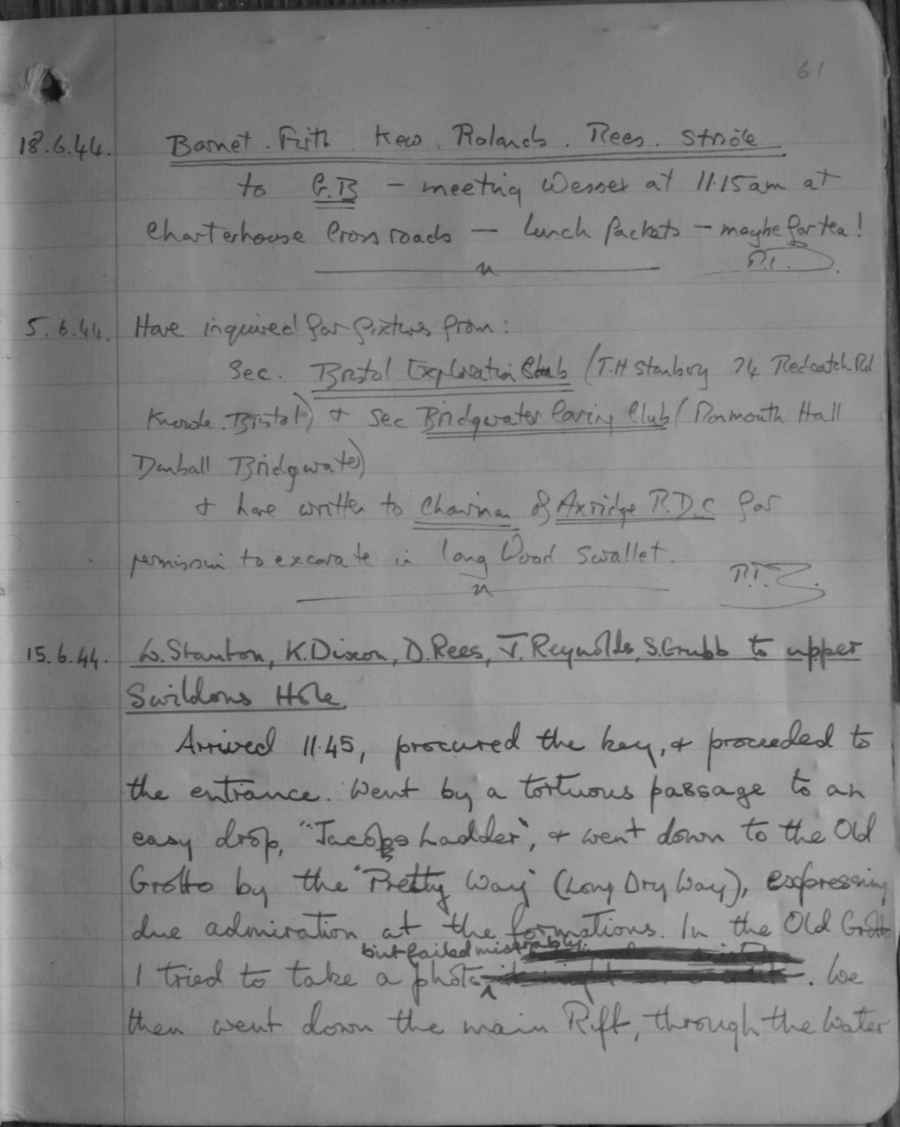 61
18.6.44. Barnet. Frith Kew. Rolands. Rees. Stride
to G.B – meeting Wessex at 11.15am at
Charterhouse Cross roads – lunch packets – maybe for tea!
5.6.44. Have inquired for fixtures from:
Sec. Bristol Exploration Club (T.H Stanbury 74 Redcatch Rd
Knowle. Bristol) + Sec Bridgwater Caving Club (Hall
Dunball Bridgwater)
+ have written to Chairman of Axridge R.D.C for
permission to excavate in Long Wood Swallet.
15.6.44. W. Stanton, K. Dixon, D. Rees, J. Reynolds, S. Grubb to upper
Swildons Hole.
Arrived 11.45, procured the key, + proceeded to
the entrance. Went by a tortuous passage to an
easy drop, "Jacobs Ladder", + went down to the Old
Grotto by the "Pretty Way" (Long Dry Way), expressing
due admiration at the formations. In the Old Grotto
but failed miserably
I tried to take a photo . We
then went down the main Rift, through the Water